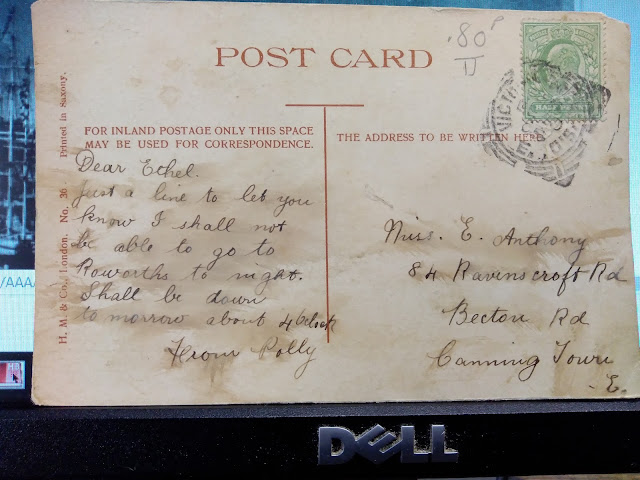 POST CARD
.80P
HALF PENNY
FOR INLAND POSTAGE ONLY THIS SPACE
MAY BE USED FOR CORRESPONDENCE.
THE ADDRESS TO BE WRITTEN HERE
Dear Ethel.
Just a line to let you
know I shall not
be able to go to
Roworths to night.
Shall be down
to morrow about 4 o'clock
From Polly
Miss. E. Anthony
84 Ravenscroft Rd
Becton Rd
Canning Town
E.
H. M. & Co., London. No. 36 Printed in Saxony.
/AAA/
DELL